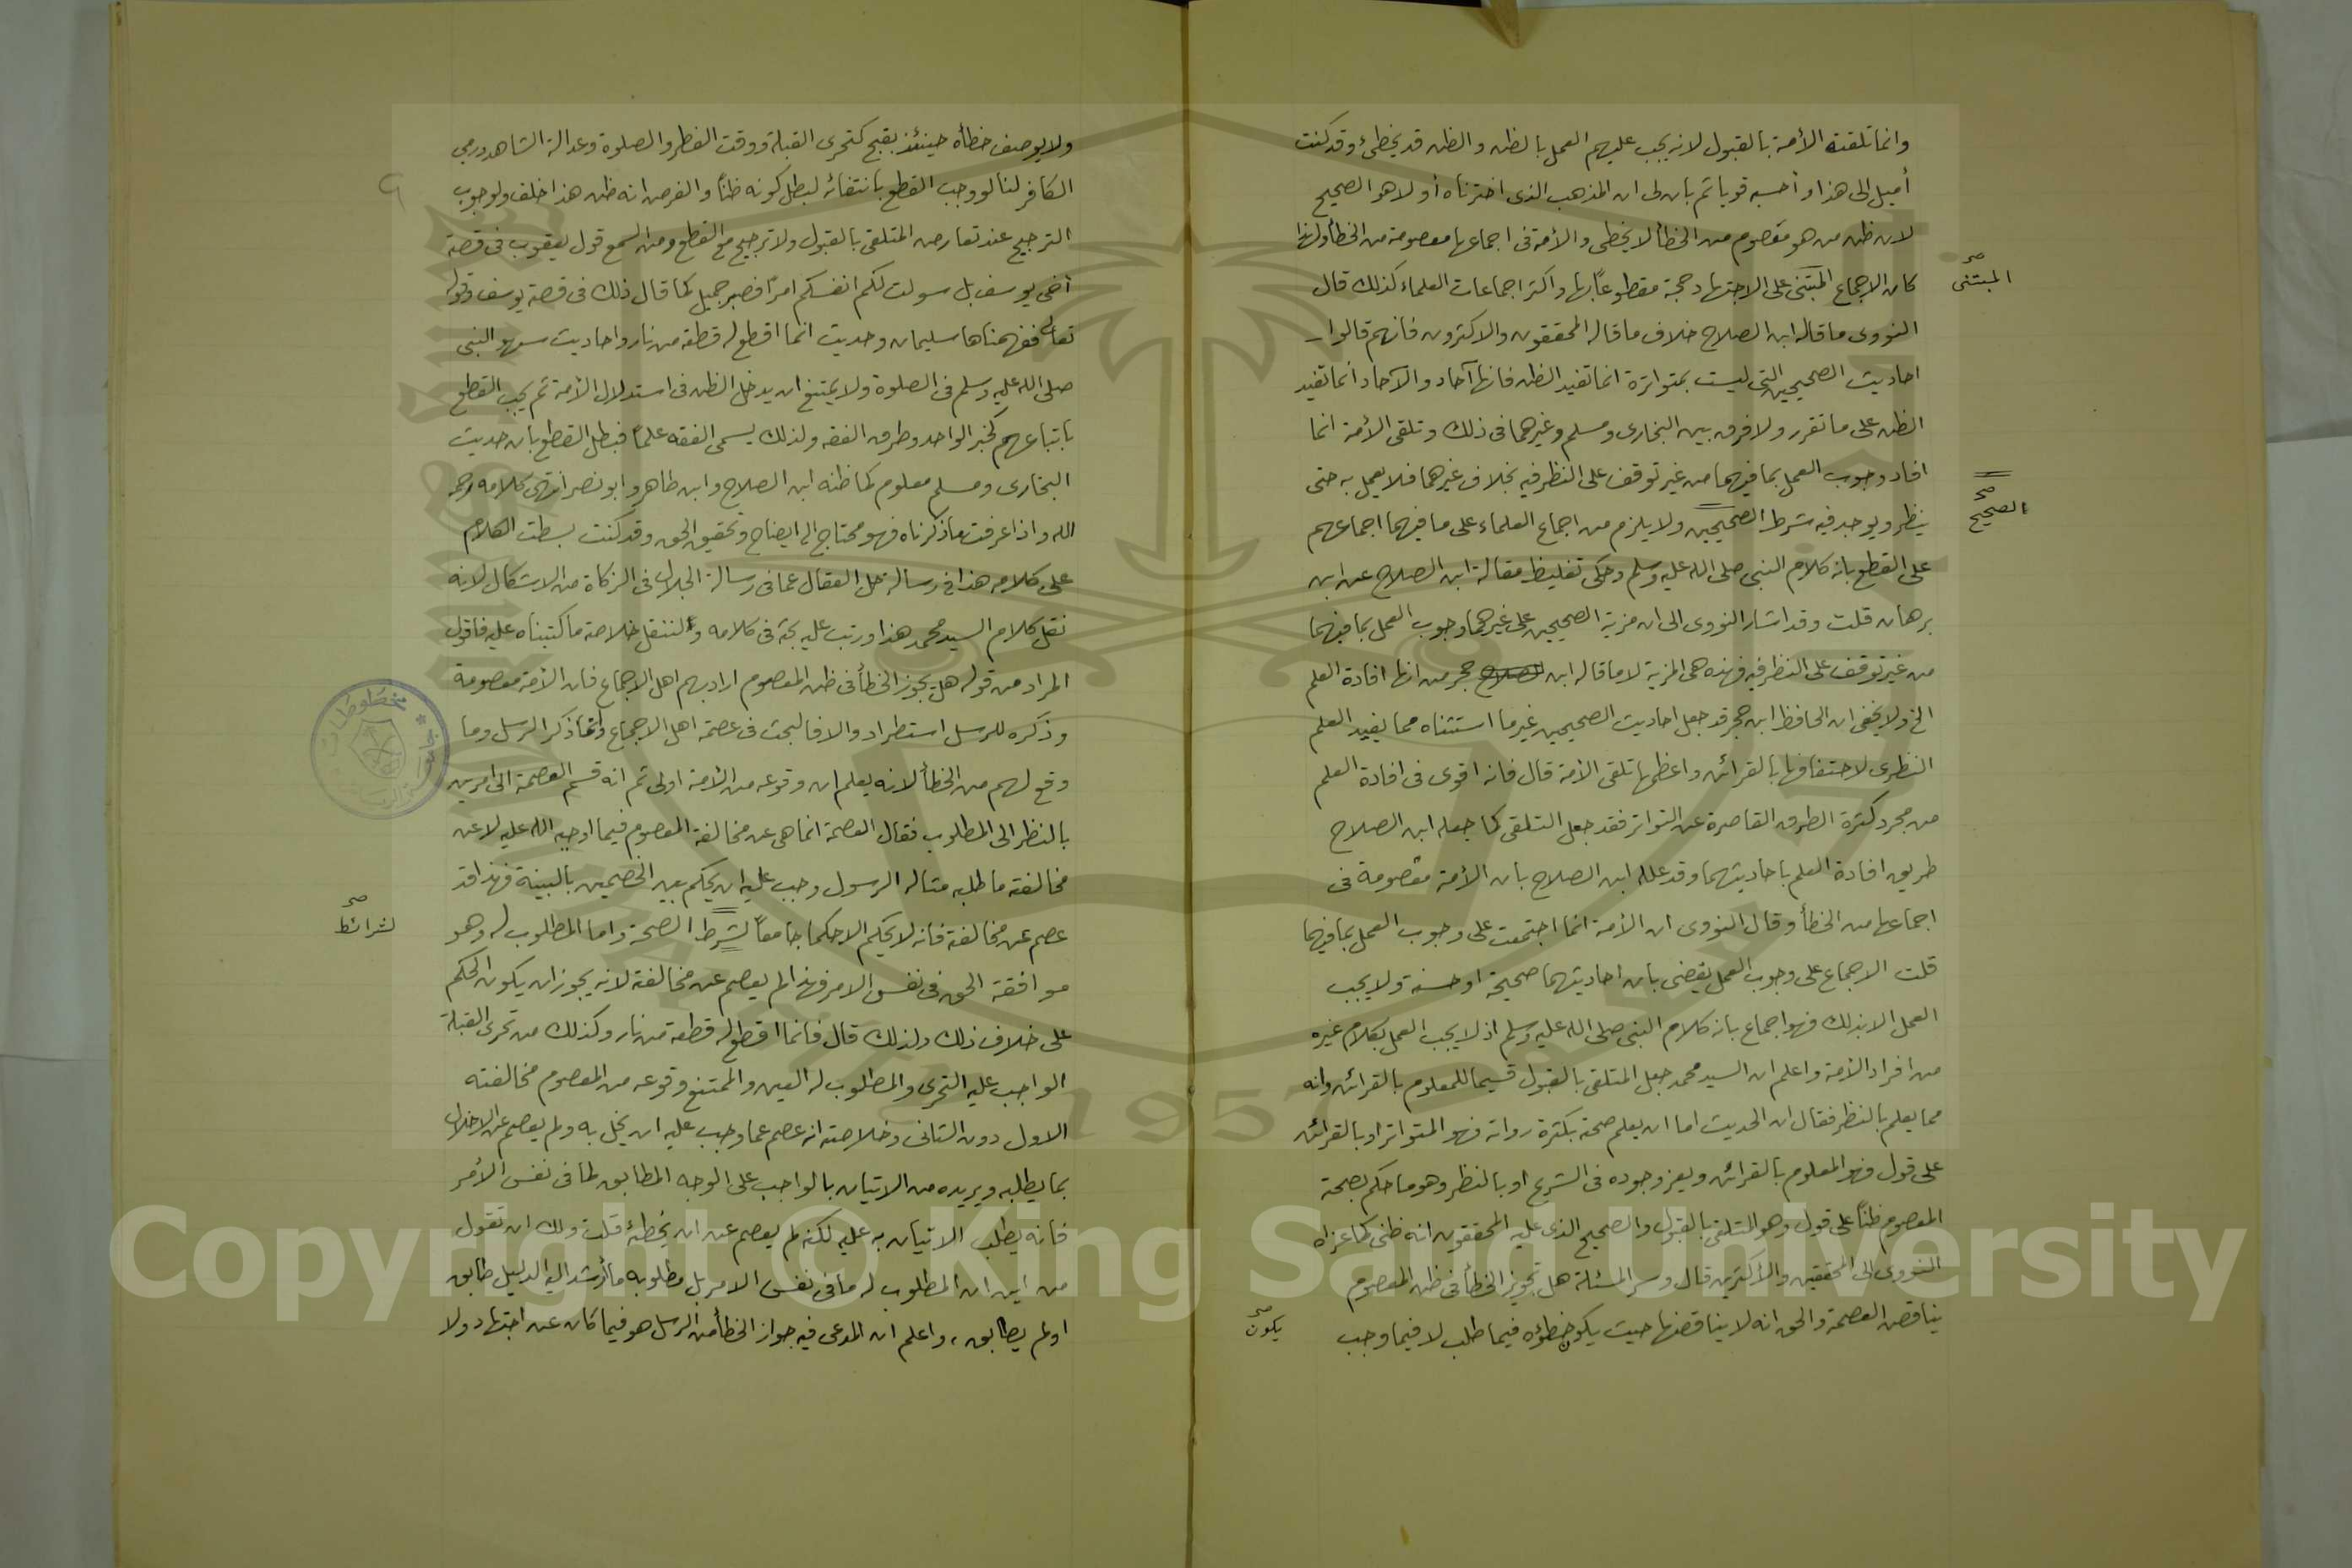 وانما تلقته الأمة بالقبول لانه يجب عليهم العمل بالظن والظن قد يخطئ وقد كنت
أميل الى هذا وأحسبه قويا ثم بان لى ان المذهب الذى اخترناه أولا هو الصحيح
لان ظن من هو معصوم من الخطأ لا يخطى والأمة فى اجماعها معصومة من الخطأ ولهذا
كان الاجماع المبتنى على الاجتهاد حجة مقطوعاً بها واكثر اجماعات العلماء كذلك قال
المبتنى صح
النووى ما قاله ابن الصلاح خلاف ما قاله المحققون والاكثرون فانهم قالوا
احاديث الصحيحين التى ليست بمتواترة انما تفيد الظن فانها آحاد والآحاد انما تفيد
الظن على ما تقرر ولا فرق بين البخارى ومسلم وغيرهما فى ذلك وتلقى الأمة انما
افاد وجوب العمل بما فيهما من غير توقف على النظر فيه بخلاف غيرهما فلا يعمل به حتى
ينظر ويوجد فيه شرط الصحيحين ولا يلزم من اجماع العلماء على ما فيهما اجماعهم
الصحيح صح
على القطع بانه كلام النبى صلى الله عليه وسلم وحكى تغليظ مقالة ابن الصلاح عن ابن
برهان قلت وقد اشار النووى الى ان مزية الصحيحين على غيرهما وجوب العمل بما فيهما
من غير توقف على النظر فيه فهذه هى المزية لا ما قاله ابن حجر من انها افادة العلم
الخ ولا يخفى ان الحافظ ابن حجر قد جعل احاديث الصحيحين غير ما استثناه مما يفيد العلم
النظرى لاحتفافها بالقرائن واعظمها تلقى الأمة قال فانه اقوى فى افادة العلم
من مجرد كثرة الطرق القاصرة عن التواتر فقد جعل التلقى كما جعله ابن الصلاح
طريق افادة العلم باحاديثهما وقد علله ابن الصلاح بان الأمة معصومة فى
اجماعها من الخطأ وقال النووى ان الأمة انما اجتمعت على وجوب العمل بما فيهما
قلت الاجماع على وجوب العمل يقضى بان احاديثهما صحيحة او حسنة ولا يجب
العمل الا بذلك فهو اجماع بانه كلام النبى صلى الله عليه وسلم اذ لا يجب العمل بكلام غيره
من افراد الأمة واعلم ان السيد محمد جعل المتلقى بالقبول قسيما للمعلوم بالقرائن وانه
مما يعلم بالنظر فقال ان الحديث اما ان يعلم صحته بكثرة رواته فهو المتواتر او بالقرائن
على قول فهو المعلوم بالقرائن ويعز وجوده فى الشرع او بالنظر وهو ما حكم بصحته
المعصوم ظناً على قول وهو المتلقى بالقبول والصحيح الذى عليه المحققون انه ظنى كما عزاه
النووى الى المحققين والأكثرين قال وسر المسئلة هل تجويز الخطأ فى ظن المعصوم
يناقض العصمة والحق انه لا يناقضها حيث يكون خطؤه فيما طلب لا فيما وجب
يكون صح
٩
ولا يوصف خطأه حينئذ بقبح كتحرى القبلة ووقت الفطر والصلوة وعدالة الشاهد ورمي
الكافر لنا لو وجب القطع بانتفائه لبطل كونه ظناً والفرض انه ظن هذا خلف ولوجوب
الترجيح عند تعارض المتلقى بالقبول ولا ترجيح مع القطع ومن السمع قول يعقوب فى قصة
أخى يوسف بل سولت لكم انفسكم امراً فصبر جميل كما قال ذلك فى قصة يوسف وقوله
تعالى ففهمناها سليمان وحديث انما اقطع له قطعة من نار واحاديث سهو النبى
صلى الله عليه وسلم فى الصلوة ولا يمتنع ان يدخل الظن فى استدلال الأمة ثم يجب القطع
باتباعهم كخبر الواحد وطرق الفقه ولذلك يسمى الفقه علماً فبطل القطع بان حديث
البخارى ومسلم معلوم كما ظنه ابن الصلاح وابن طاهر وابو نصر انتهى كلامه رحمه
الله واذا عرفت ما ذكرناه فهو محتاج الى ايضاح وتحقيق الحق وقد كنت بسطت الكلام
على كلامه هذا فى رسالة حل العقال عما فى رسالة الجلال فى الزكاة من الاشكال لانه
نقل كلام السيد محمد هذا ورتب عليه بحثه فى كلامه ولننقل خلاصة ما كتبناه عليه فاقول
المراد من قوله هل يجوز الخطأ فى ظن المعصوم اراد بهم اهل الاجماع فان الأمة معصومة
وذكره للرسل استطراد والا فالبحث فى عصمة اهل الاجماع وانما ذكر الرسل وما
وقع لهم من الخطأ لانه يعلم ان وقوعه من الأمة اولى ثم انه قسم العصمة الى امرين
بالنظر الى المطلوب فقال العصمة انما هى عن مخالفة المعصوم فيما اوجبه الله عليه لا عن
مخالفة ما طلبه مثاله الرسول وجب عليه ان يحكم بين الخصمين بالبينة فهذا قد
عصم عن مخالفته فانه لا يحكم الا حكما جامعاً لشرط الصحة واما المطلوب له وهو
لشرائط صح
موافقة الحق فى نفس الامر فهذا لم يعصم عن مخالفته لانه يجوز ان يكون الحكم
على خلاف ذلك ولذلك قال فانما اقطع له قطعة من نار وكذلك من تحرى القبلة
الواجب عليه التحرى والمطلوب له العين والممتنع وقوعه من المعصوم مخالفته
الاول دون الثانى وخلاصته انه عصم عما وجب عليه ان يخل به ولم يعصم عن الاخلال
بما يطلبه ويريده من الاتيان بالواجب على الوجه المطابق لما فى نفس الأمر
فانه يطلب الاتيان به عليه لكنه لم يعصم عن ان يخطئه قلت ولك ان تقول
من اين ان المطلوب له ما فى نفس الامر بل مطلوبه ما أرشد اليه الدليل طابق
او لم يطابق، واعلم ان المدعى فيه جواز الخطأ من الرسل هو فيما كان عن اجتهاد ولا
1957
Copyright © King Saud University